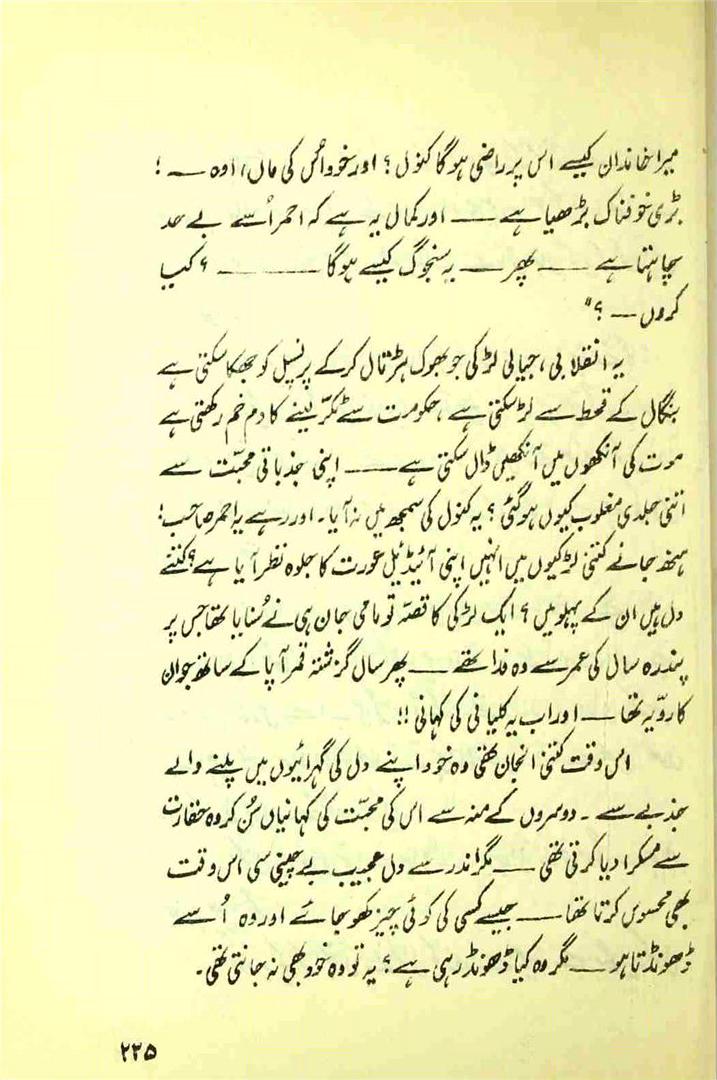 میرا خاندان کیسے اس پر راضی ہوگا کنول؟ اور خود اُس کی ماں، اوہ — !
بڑی خوفناک بڑھیا ہے — اور کمال یہ ہے کہ احمر اُسے بے حد
چاہتا ہے — پھر — یہ سنجوگ کیسے ہوگا — ؟ کیا
کروں — ؟"
یہ انقلابی، جیالی لڑکی جو بھوک ہڑتال کرکے پرنسپل کو جھکا سکتی ہے
بنگال کے قحط سے لڑ سکتی ہے، حکومت سے ٹکر لینے کا دم خم رکھتی ہے
موت کی آنکھوں میں آنکھیں ڈال سکتی ہے — اپنی جذباتی محبّت سے
اتنی جلدی مغلوب کیوں ہو گئی؟ یہ کنول کی سمجھ میں نہ آیا۔ اور رہے یہ احمر صاحب!
جانے کتنی لڑکیوں میں انہیں اپنی آئیڈیل عورت کا جلوہ نظر آیا ہے؟ کتنے
دل ہیں ان کے پہلو میں؟ ایک لڑکی کا قصّہ تو مامی جان ہی نے سُنایا تھا جس پر
پندرہ سال کی عمر سے وہ فدا تھے — پھر سال گزشتہ قمر آپا کے ساتھ جو ان
کا رویّہ تھا — اور اب یہ کلیانی کی کہانی !!
اس وقت کتنی انجان تھی وہ خود اپنے دل کی گہرائیوں میں پلنے والے
جذبے سے۔ دوسروں کے منہ سے اس کی محبّت کی کہانیاں سُن کر وہ حقارت
سے مسکرا دیا کرتی تھی — مگر اندر سے دل عجیب بے چینی سی اس وقت
بھی محسوس کرتا تھا — جیسے کسی کی کوئی چیز کھو جائے اور وہ اُسے
ڈھونڈتا ہو — مگر وہ کیا ڈھونڈ رہی ہے؟ یہ تو وہ خود بھی نہ جانتی تھی۔
۲۲۵